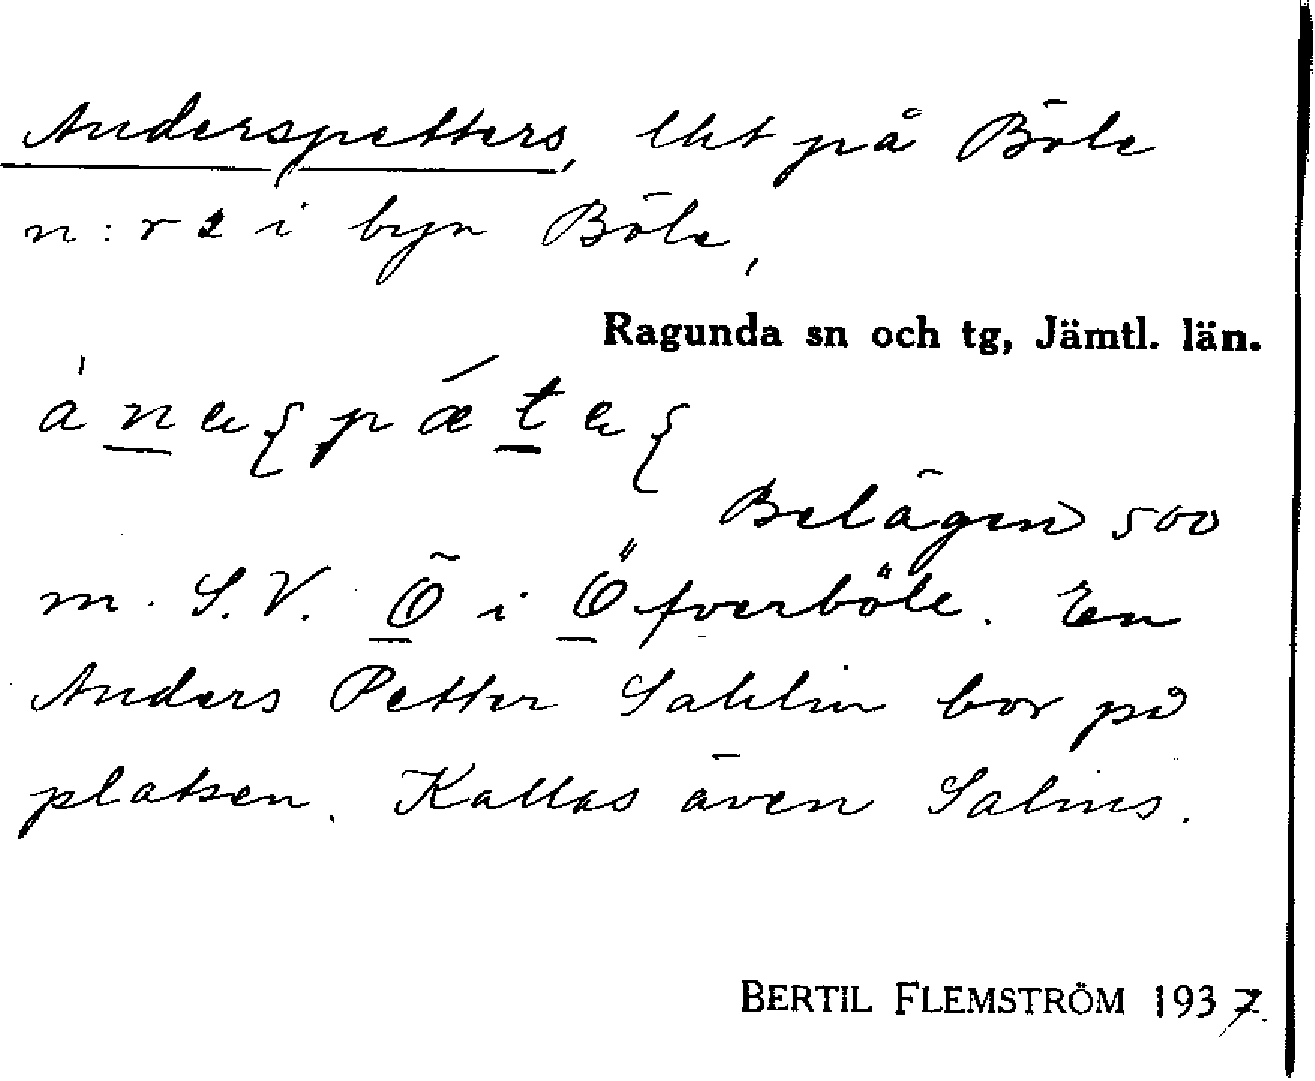 Anderspetters, lht på Böle
n:r 2 i byn Böle,
Ragunda sn och tg, Jämtl. län.
Belägen 500
m. S.V. Ö i Öfverböle. En
Anders Petter Sahlin bor på
platsen. Kallas även Salins.
BERTIL FLEMSTRÖM 1937.